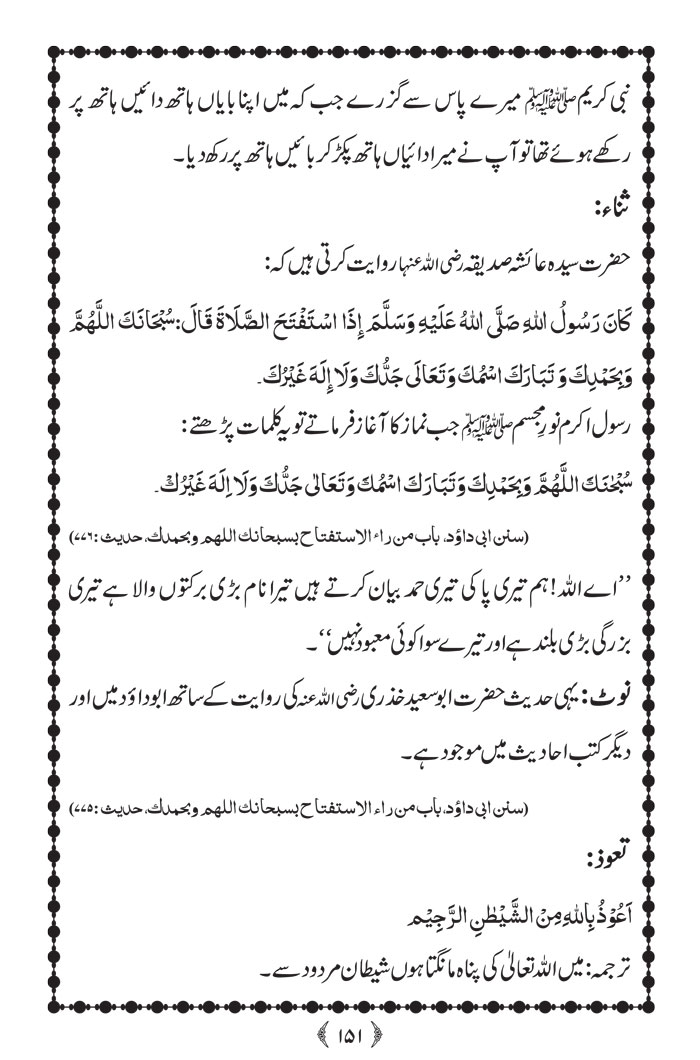 نبی کریم ﷺ میرے پاس سے گزرے جب کہ میں اپنا بایاں ہاتھ دائیں ہاتھ پر
رکھے ہوئے تھا تو آپ نے میرا دائیاں ہاتھ پکڑ کر بائیں ہاتھ پر رکھ دیا۔
ثناء:
حضرت سیدہ عائشہ صدیقہ رضی اللہ عنہا روایت کرتی ہیں کہ:
كَانَ رَسُولُ اللهِ صَلَّى اللهُ عَلَيْهِ وَسَلَّمَ إِذَا اسْتَفْتَحَ الصَّلَاةَ قَالَ: سُبْحَانَكَ اللَّهُمَّ
وَبِحَمْدِكَ وَ تَبَارَكَ اسْمُكَ وَتَعَالَى جَدُّكَ وَلَا إِلَهَ غَيْرُكَ۔
رسول اکرم نورِ مجسم ﷺ جب نماز کا آغاز فرماتے تو یہ کلمات پڑھتے:
سُبْحٰنَكَ اللَّهُمَّ وَبِحَمْدِكَ وَتَبَارَكَ اسْمُكَ وَتَعَالٰى جَدُّكَ وَلَا اِلٰهَ غَيْرُكْ۔
(سنن ابی داؤد، باب من راء الاستفتاح بسبحانك اللهم وبحمدك، حدیث:٧٧٦)
’’اے اللہ! ہم تیری پاکی تیری حمد بیان کرتے ہیں تیرا نام بڑی برکتوں والا ہے تیری
بزرگی بڑی بلند ہے اور تیرے سوا کوئی معبود نہیں‘‘۔
نوٹ: یہی حدیث حضرت ابو سعید خذری رضی اللہ عنہ کی روایت کے ساتھ ابوداؤد میں اور
دیگر کتب احادیث میں موجود ہے۔
(سنن ابی داؤد، باب من راء الاستفتاح بسبحانك اللهم وبحمدك، حدیث:٧٧٥)
تعوذ:
اَعُوْذُ بِاللهِ مِنْ الشَّيْطٰنِ الرَّجِيْم
ترجمہ: میں اللہ تعالیٰ کی پناہ مانگتا ہوں شیطان مردود سے۔
﴿ ۱۵۱ ﴾